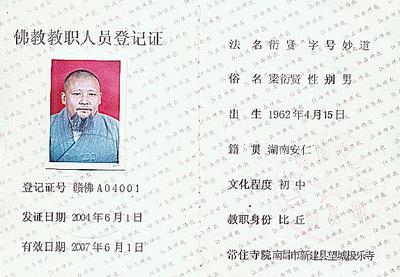 佛教教职人员登记证
登记证号 赣佛A04001
发证日期 2004年6月1日
有效日期 2007年6月1日
法名 衍贤 字号 妙道
俗名 梁衍贤 性别 男
出生 1962年4月15日
籍贯 湖南安仁
文化程度 初中
教职身份 比丘
常住寺院 南昌市新建县望城极乐寺